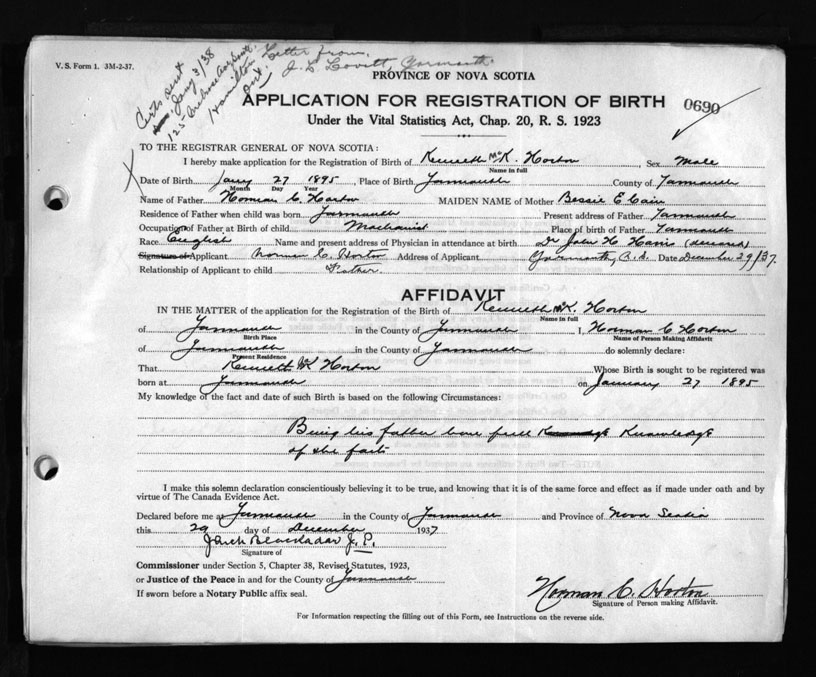 V. S. Form 1. 3M-2-37.
Certs sent
Jany 3/38
125
Hamilton
Ont.
Letter from
J. L. Lovitt, Yarmouth
PROVINCE OF NOVA SCOTIA
APPLICATION FOR REGISTRATION OF BIRTH
0690
Under the Vital Statistics Act, Chap. 20, R. S. 1923
TO THE REGISTRAR GENERAL OF NOVA SCOTIA:
I hereby make application for the Registration of Birth of Kenneth McK. Horton, Sex Male
Name in full
Date of Birth Jany 27 1895, Place of Birth Yarmouth County of Yarmouth
Month Day Year
Name of Father Norman C. Horton MAIDEN NAME of Mother Bessie E Cain
Residence of Father when child was born Yarmouth Present address of Father Yarmouth
Occupation of Father at Birth of child Machinist Place of birth of Father Yarmouth
Race English Name and present address of Physician in attendance at birth Dr John H Harris (deceased)
Signature of Applicant Norman C. Horton Address of Applicant Yarmouth, N.S. Date December 29/37.
Relationship of Applicant to child Father.
AFFIDAVIT
IN THE MATTER of the application for the Registration of the Birth of Kenneth McK. Horton
Name in full
of Yarmouth in the County of Yarmouth I, Norman C Horton
Birth Place Name of Person Making Affidavit
of Yarmouth in the County of Yarmouth do solemnly declare:
Present Residence
That Kenneth McK Horton Whose Birth is sought to be registered was
born at Yarmouth on January 27 1895
My knowledge of the fact and date of such Birth is based on the following Circumstances:
Being his father have full Knowledge
of the facts
I make this solemn declaration conscientiously believing it to be true, and knowing that it is of the same force and effect as if made under oath and by
virtue of The Canada Evidence Act.
Declared before me at Yarmouth in the County of Yarmouth and Province of Nova Scotia
this 29 day of December 1937
J. P.
Signature of
Commissioner under Section 5, Chapter 38, Revised Statutes, 1923,
or Justice of the Peace in and for the County of Yarmouth
If sworn before a Notary Public affix seal.
Norman C. Horton
Signature of Person making Affidavit.
For Information respecting the filling out of this Form, see Instructions on the reverse side.